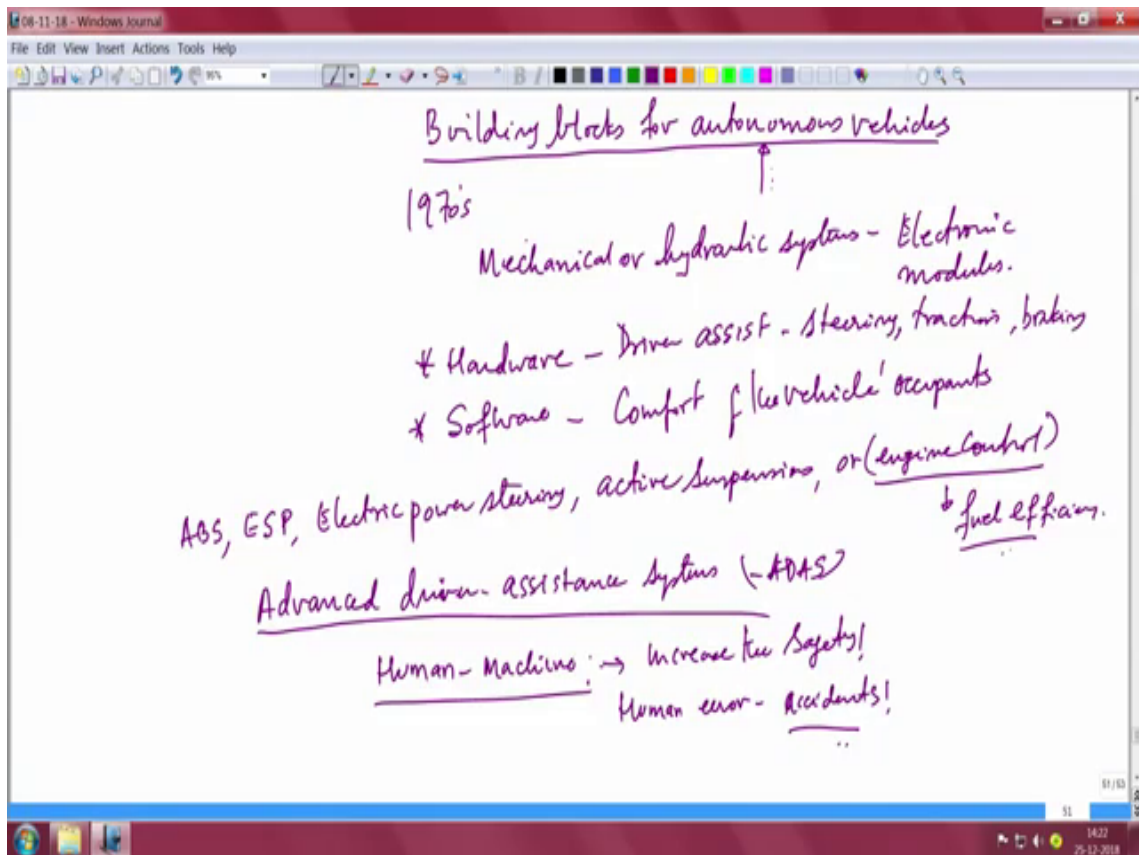 08-11-18 - Windows Journal
File Edit View Insert Actions Tools Help
Building blocks for autonomous vehicles
1970's
Mechanical or hydraulic systems - Electronic
modules.
* Hardware - Driver assist - steering, traction, braking
* Software - Comfort of the vehicle' occupants
ABS, ESP, Electric power steering, active suspension, or (engine control)
fuel efficiency.
Advanced driver-assistance systems (-ADAS)
Human-Machine: → Increase the Safety!
Human error - accidents!
51/53
51
14:22
25-12-2018